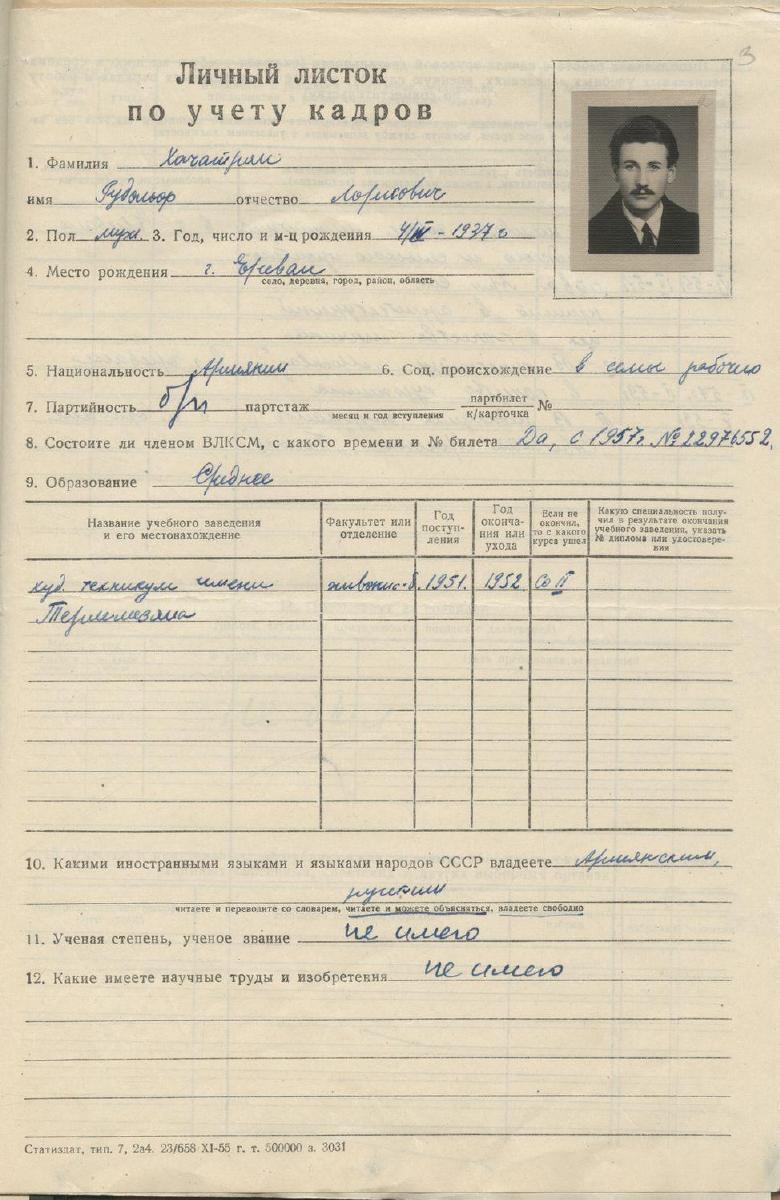 3
Личный листок
по учету кадров
1. Фамилия Хачатрян
имя Рудольф отчество Лорисович
2. Пол муж. 3. Год, число и м-ц рождения 4/ - 1937 г
4. Место рождения г. Ереван
село, деревня, город, район, область
5. Национальность Армянин 6. Соц. происхождение в семье рабочего
7. Партийность б/п партстаж месяц и год вступления партбилет к/карточка №
8. Состоите ли членом ВЛКСМ, с какого времени и № билета Да, с 1957г. № 22976552.
9. Образование Среднее
Название учебного заведения и его местонахождение
Факультет или отделение
Год поступ-ления
Год оконча-ния или ухода
Если не окончил, то с какого курса ушел
Какую специальность полу-чил в результате окончания учебного заведения, указать № диплома или удостовере-ния
худ. техникум имени 1951. 1952 Со II
Терлемезяна
10. Какими иностранными языками и языками народов СССР владеете Армянским,
русским
читаете и переводите со словарем, читаете и можете объясняться, владеете свободно
11. Ученая степень, ученое звание не имею
12. Какие имеете научные труды и изобретения не имею
Статиздат, тип. 7, 2а4. 23/658 XI-55 г. т. 500000 з. 3031